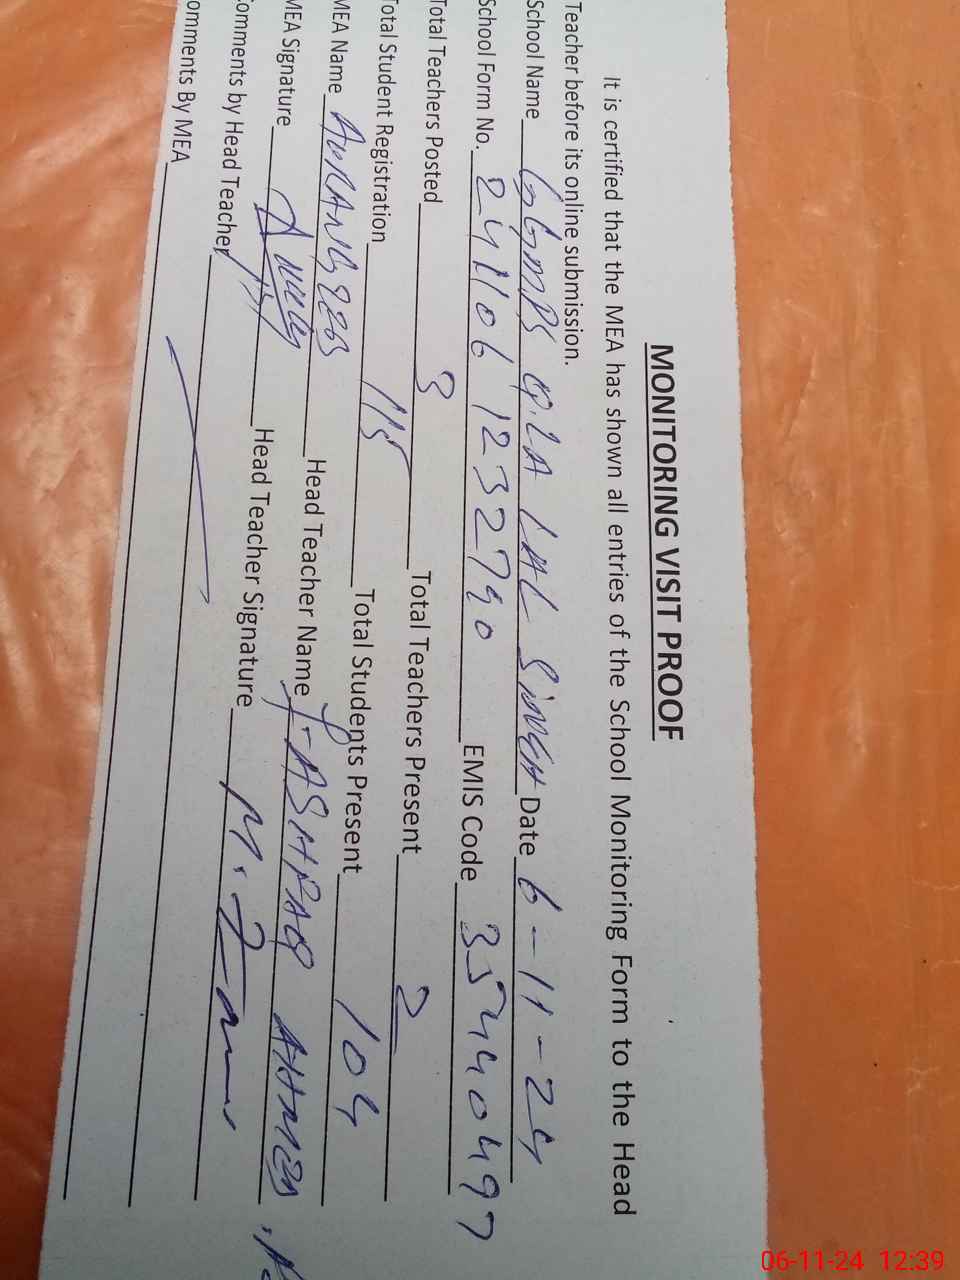 MONITORING VISIT PROOF
It is certified that the MEA has shown all entries of the School Monitoring Form to the Head
Teacher before its online submission.
School Name GGMPS LAL SINGH Date 6-11-24
School Form No. 241106123290 EMIS Code 35440497
Total Teachers Posted 3 Total Teachers Present 2
Total Student Registration 115 Total Students Present 104
MEA Name Head Teacher Name ASHFAQ AHMED
MEA Signature Head Teacher Signature
omments by Head Teacher
omments By MEA
06-11-24 12:39